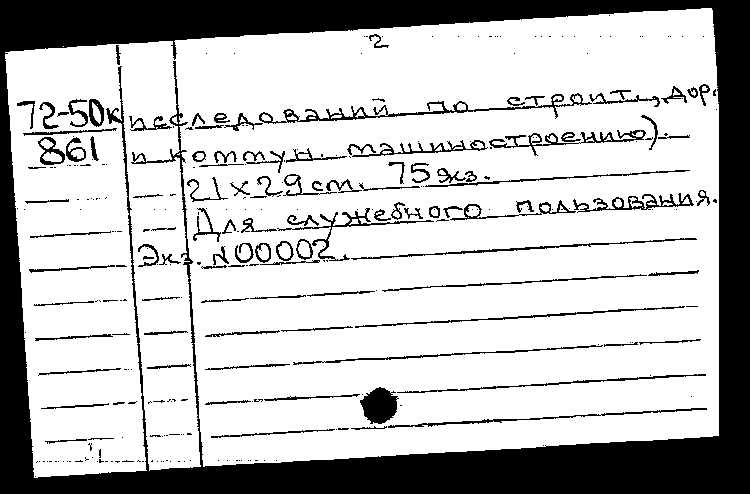 2
72-50к исследований по строит., дор.
861 и коммун. машиностроению).
21х29 cm. 75 экз.
Для служебного пользования.
Экз. №00002.